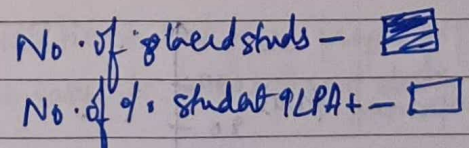 No. of placed studs -
No. of %. studat 9LPA+ -